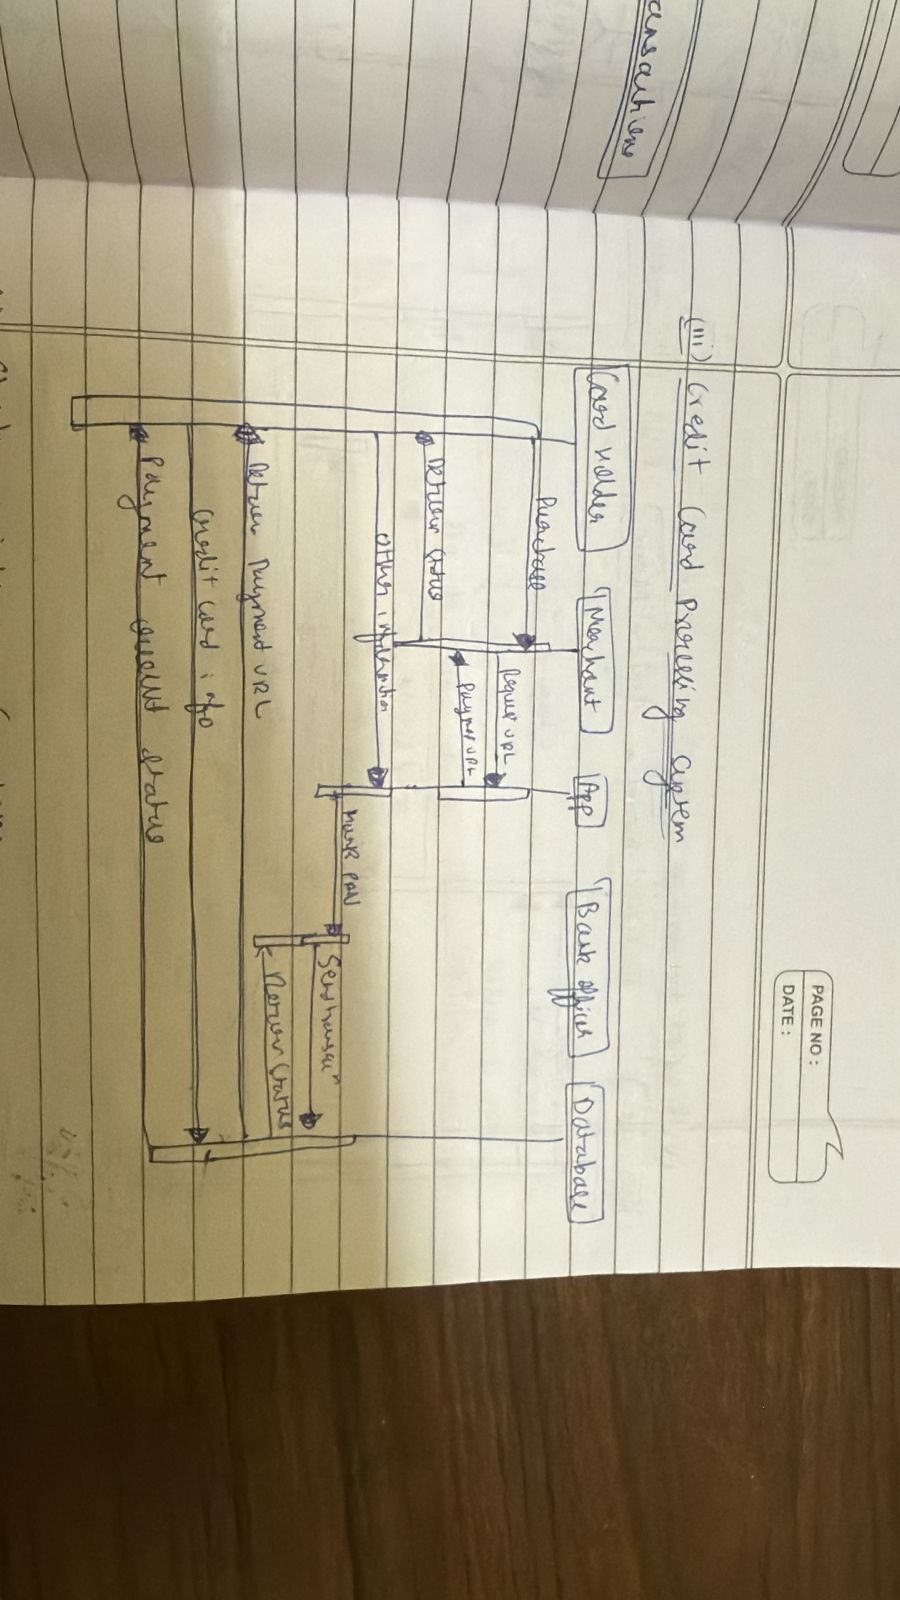 PAGE NO :
DATE :
(iii) Credit Card Processing System
Card holder
Merchant
App
Bank offices
Database
Purchase
Request URL
Payment URL
Return status
other information
Mask PAN
Send transacn
Return status
Return Payment URL
Credit card info
Payment status